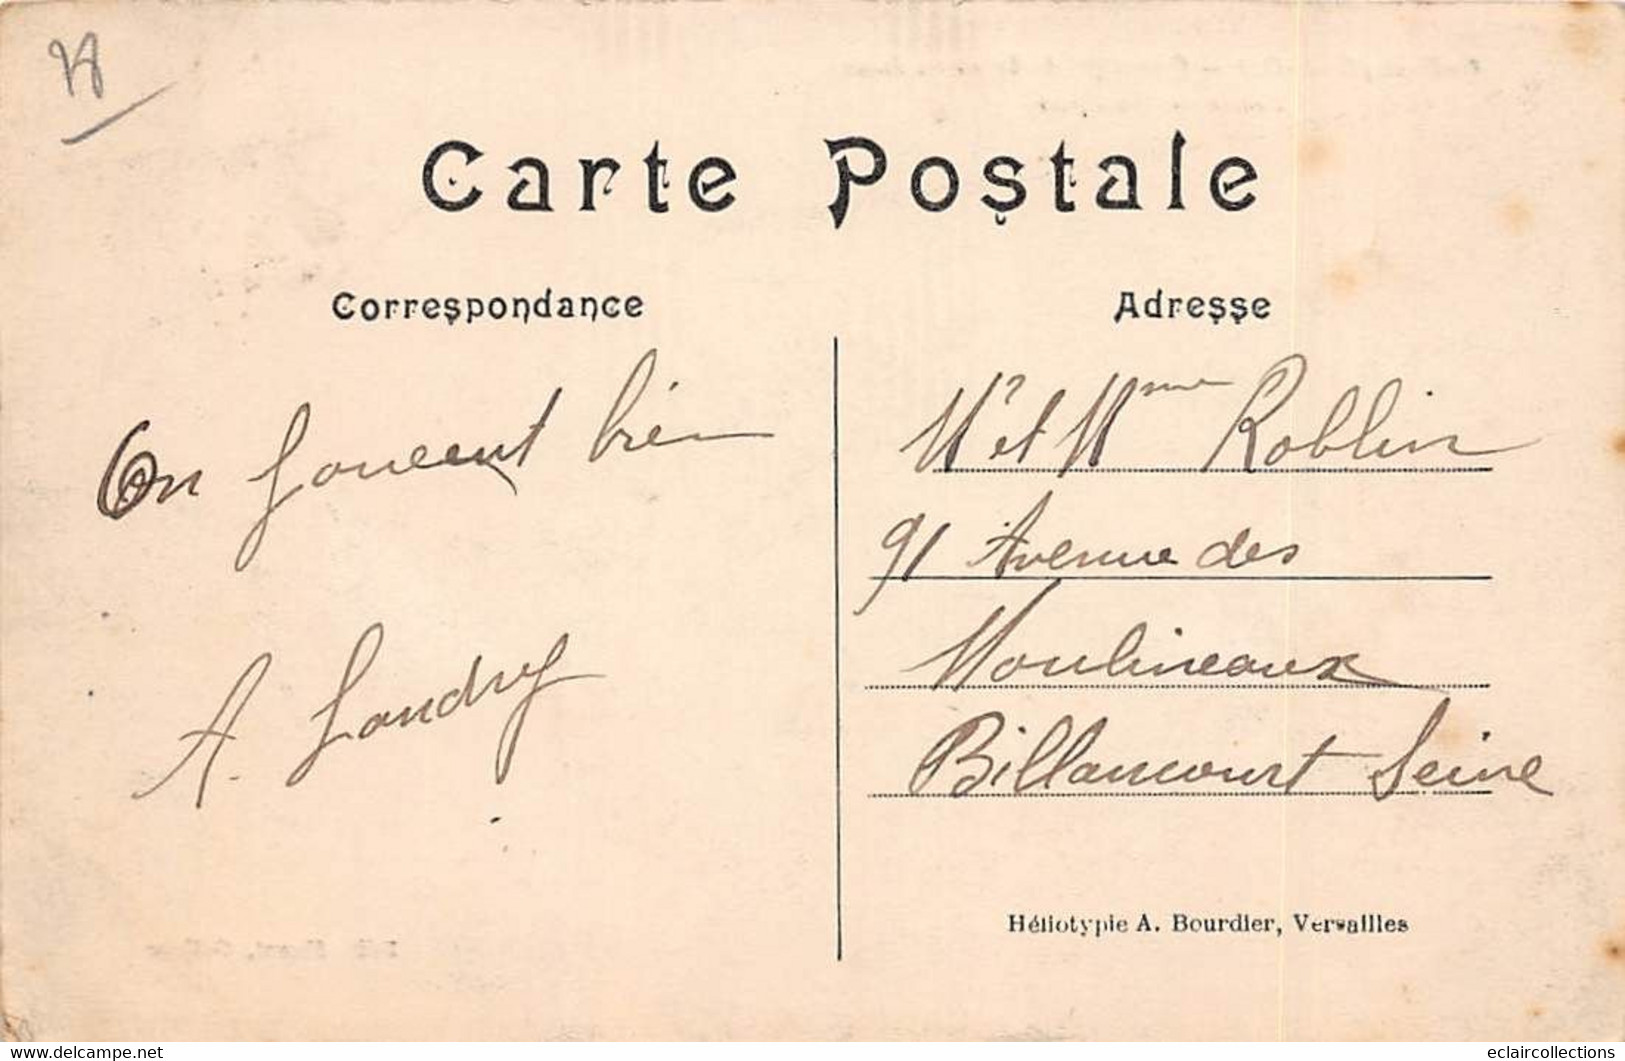 78
Carte Postale
Correspondance
On bien
A. Landry
Adresse
Mr et Mme Roblin
91 Avenue des
Moulineaux
Billancourt Seine
Héliotypie A. Bourdier, Versailles
www.delcampe.net
eclaircollections